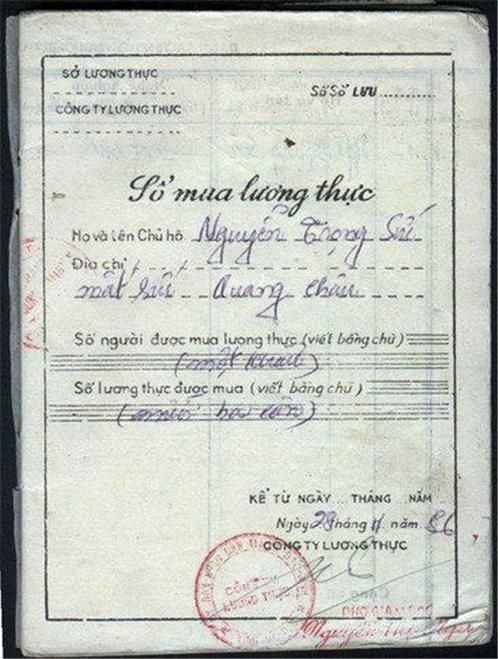 SỞ LƯƠNG THỰC
Số Sổ LƯU ..........
CÔNG TY LƯƠNG THỰC
Sổ mua lương thực
Họ và tên Chủ hộ Nguyễn Trọng Sứ
Địa chỉ
mất sứt Quang Châu
Số người được mua lương thực (viết bằng chữ)
(một khẩu)
Số lương thực được mua (viết bằng chữ)
(mười ba cân)
KỂ TỪ NGÀY ... THÁNG ... NĂM ..
Ngày 28 tháng 11 năm 86
CÔNG TY LƯƠNG THỰC
CÔNG TY
LƯƠNG THỰC
PHÓ GIÁM ĐỐC
Nguyễn